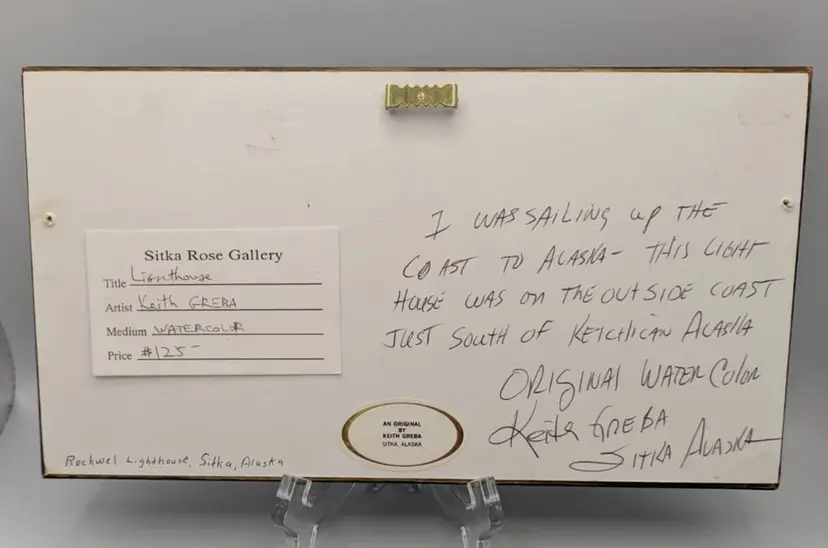 Sitka Rose Gallery
Title Lighthouse
Artist Keith GREBA
Medium WATERCOLOR
Price $125-
I WAS SAILING up THE
COAST TO ALASKA- THIS LIGHT
HOUSE WAS ON THE OUTSIDE COAST
JUST SOUTH OF KETCHICAN ALASKA
ORIGINAL WATER COLOR
Keith GREBA
SITKA ALASKA
AN ORIGINAL
BY
KEITH GREBA
SITKA, ALASKA
Rockwel Lighthouse, Sitka, Alaska